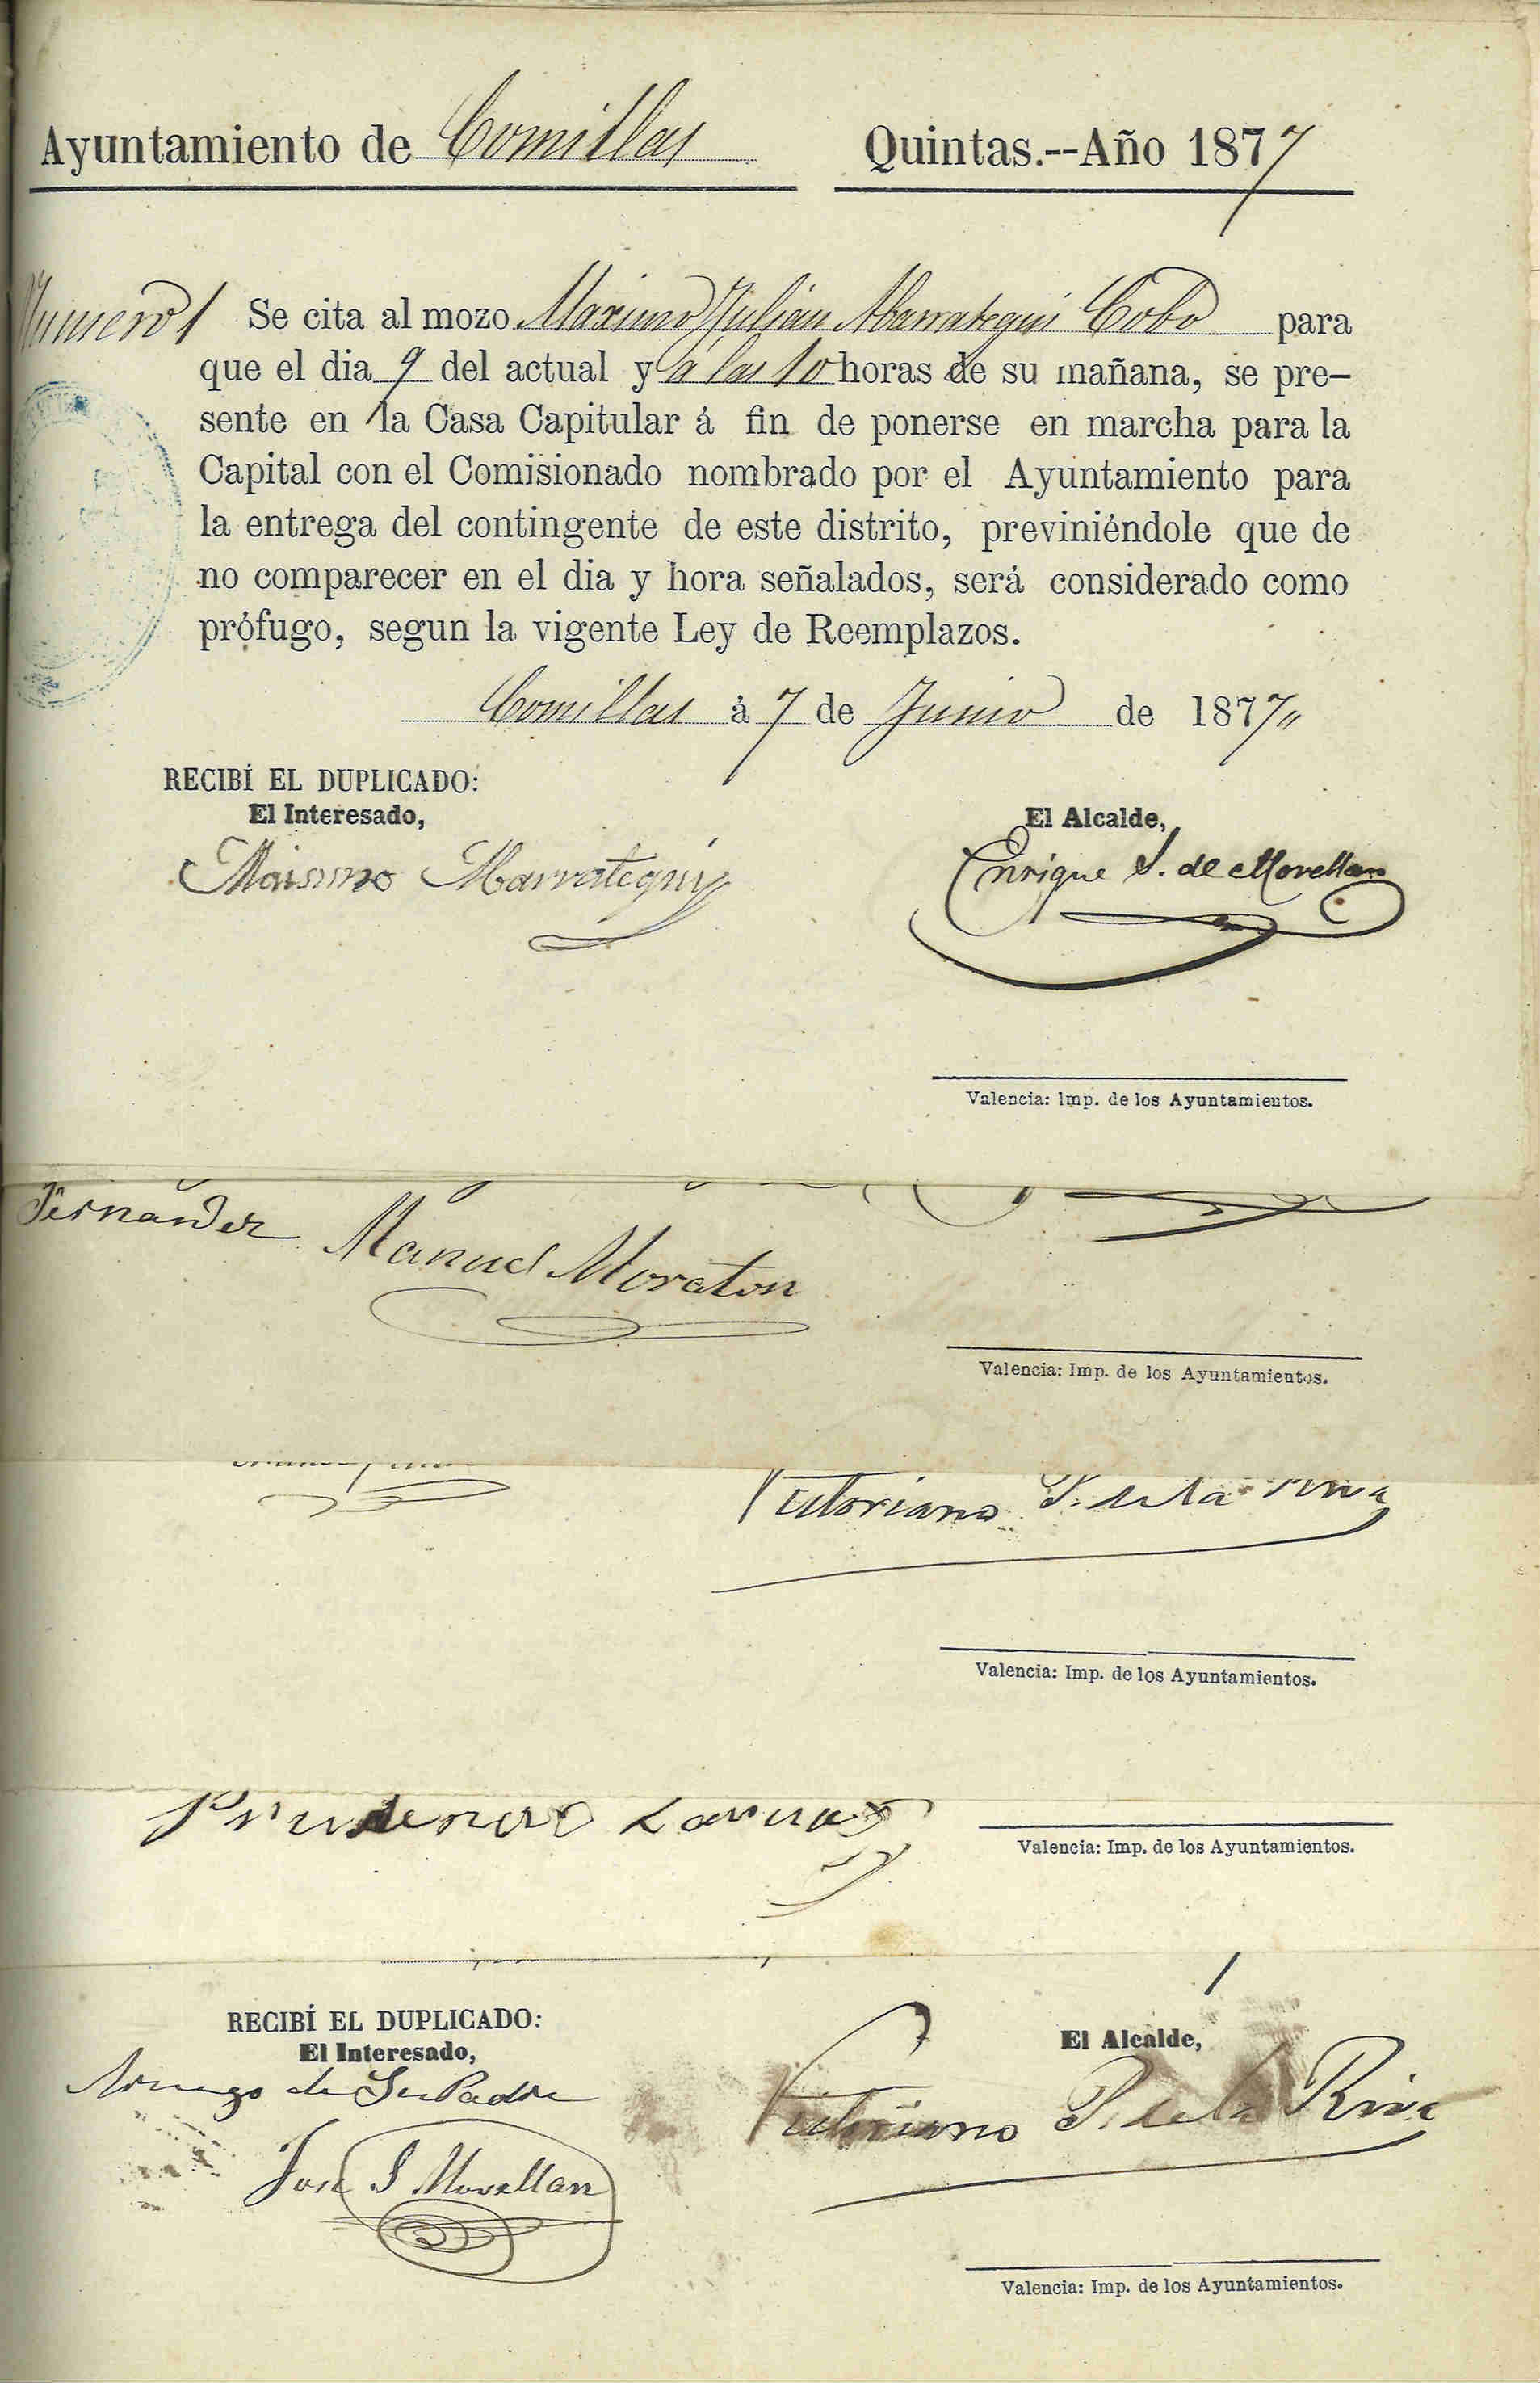 Ayuntamiento de Comillas Quintas.--Año 1877
Numero 1 Se cita al mozo Maximo Julian Abarrategui Cobo para
que el dia 9 del actual y á las 10 horas de su mañana, se pre-
sente en la Casa Capitular á fin de ponerse en marcha para la
Capital con el Comisionado nombrado por el Ayuntamiento para
la entrega del contingente de este distrito, previniéndole que de
no comparecer en el dia y hora señalados, será considerado como
prófugo, segun la vigente Ley de Reemplazos.
Comillas á 7 de Junio de 1877
RECIBÍ EL DUPLICADO:
El Interesado,
El Alcalde,
Maisimo Abarrategui
Enrique S. de Movellan
Valencia: Imp. de los Ayuntamientos.
Fernandez Manuel Moraton
Valencia: Imp. de los Ayuntamientos.
Victoriano P. de la Riva
Valencia: Imp. de los Ayuntamientos.
Prudencio
Valencia: Imp. de los Ayuntamientos.
RECIBÍ EL DUPLICADO:
El Interesado,
El Alcalde,
Arruego de Su Padre
Victoriano P. de la Riva
Jose S Movellan
Valencia: Imp. de los Ayuntamientos.